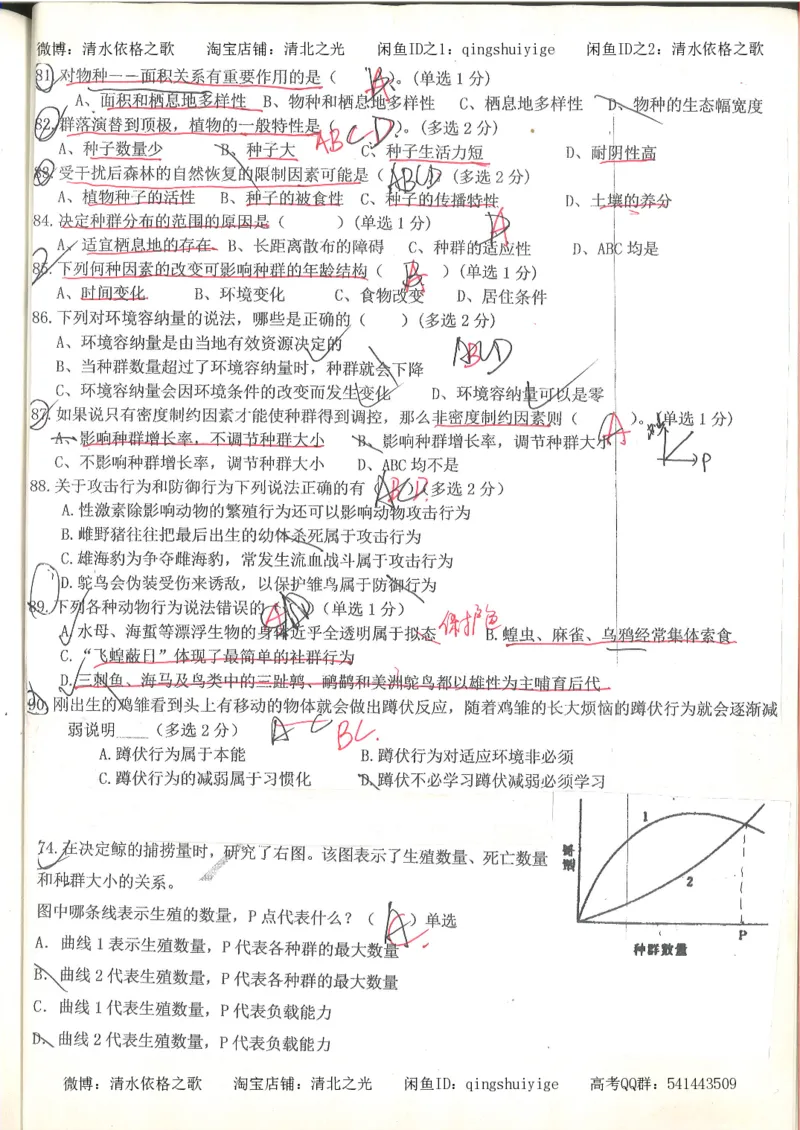 微博：清水依格之歌　　淘宝店铺：清北之光　　闲鱼ID之1：qingshuiyige　　闲鱼ID之2：清水依格之歌
81.对物种——面积关系有重要作用的是（ A ）。(单选1分)
A、面积和栖息地多样性 B、物种和栖息地多样性 C、栖息地多样性 D、物种的生态幅宽度
82.群落演替到顶极，植物的一般特性是（ ABCD ）。(多选2分)
A、种子数量少 B、种子大 C、种子生活力短 D、耐阴性高
83.受干扰后森林的自然恢复的限制因素可能是（ ABCD ）(多选2分)
A、植物种子的活性 B、种子的被食性 C、种子的传播特性 D、土壤的养分
84.决定种群分布的范围的原因是（ ）(单选1分) A
A、适宜栖息地的存在 B、长距离散布的障碍 C、种群的适应性 D、ABC均是
85.下列何种因素的改变可影响种群的年龄结构（ ）(单选1分)
A、时间变化 B、环境变化 C、食物改变 D、居住条件
86.下列对环境容纳量的说法，哪些是正确的（ ）(多选2分)
A、环境容纳量是由当地有效资源决定的
B、当种群数量超过了环境容纳量时，种群就会下降
C、环境容纳量会因环境条件的改变而发生变化 D、环境容纳量可以是零
87.如果说只有密度制约因素才能使种群得到调控，那么非密度制约因素则（ A ）。(单选1分)
A、影响种群增长率，不调节种群大小 B、影响种群增长率，调节种群大小
C、不影响种群增长率，调节种群大小 D、ABC均不是
P
88.关于攻击行为和防御行为下列说法正确的有（ ）(多选2分)
A.性激素除影响动物的繁殖行为还可以影响动物攻击行为
B.雌野猪往往把最后出生的幼体杀死属于攻击行为
C.雄海豹为争夺雌海豹，常发生流血战斗属于攻击行为
D.鸵鸟会伪装受伤来诱敌，以保护雏鸟属于防御行为
89.下列各种动物行为说法错误的（ A ）（单选1分）
A.水母、海蜇等漂浮生物的身体近乎全透明属于拟态 保护色 B.蝗虫、麻雀、乌鸦经常集体索食
C.“飞蝗蔽日”体现了最简单的社群行为
D.三刺鱼、海马及鸟类中的三趾鹑、鸸鹋和美洲鸵鸟都以雄性为主哺育后代
90.刚出生的鸡雏看到头上有移动的物体就会做出蹲伏反应，随着鸡雏的长大烦恼的蹲伏行为就会逐渐减
弱说明____（多选2分） A C BC.
A.蹲伏行为属于本能 B.蹲伏行为对适应环境非必须
C.蹲伏行为的减弱属于习惯化 D.蹲伏不必学习蹲伏减弱必须学习
74.在决定鲸的捕捞量时，研究了右图。该图表示了生殖数量、死亡数量
和种群大小的关系。
图中哪条线表示生殖的数量，P点代表什么？（ ）单选
A．曲线1表示生殖数量，P代表各种群的最大数量
B．曲线2代表生殖数量，P代表各种群的最大数量
C．曲线1代表生殖数量，P代表负载能力
D．曲线2代表生殖数量，P代表负载能力
1
2
P
种群数量
微博：清水依格之歌　　淘宝店铺：清北之光　　闲鱼ID：qingshuiyige　　高考QQ群：541443509